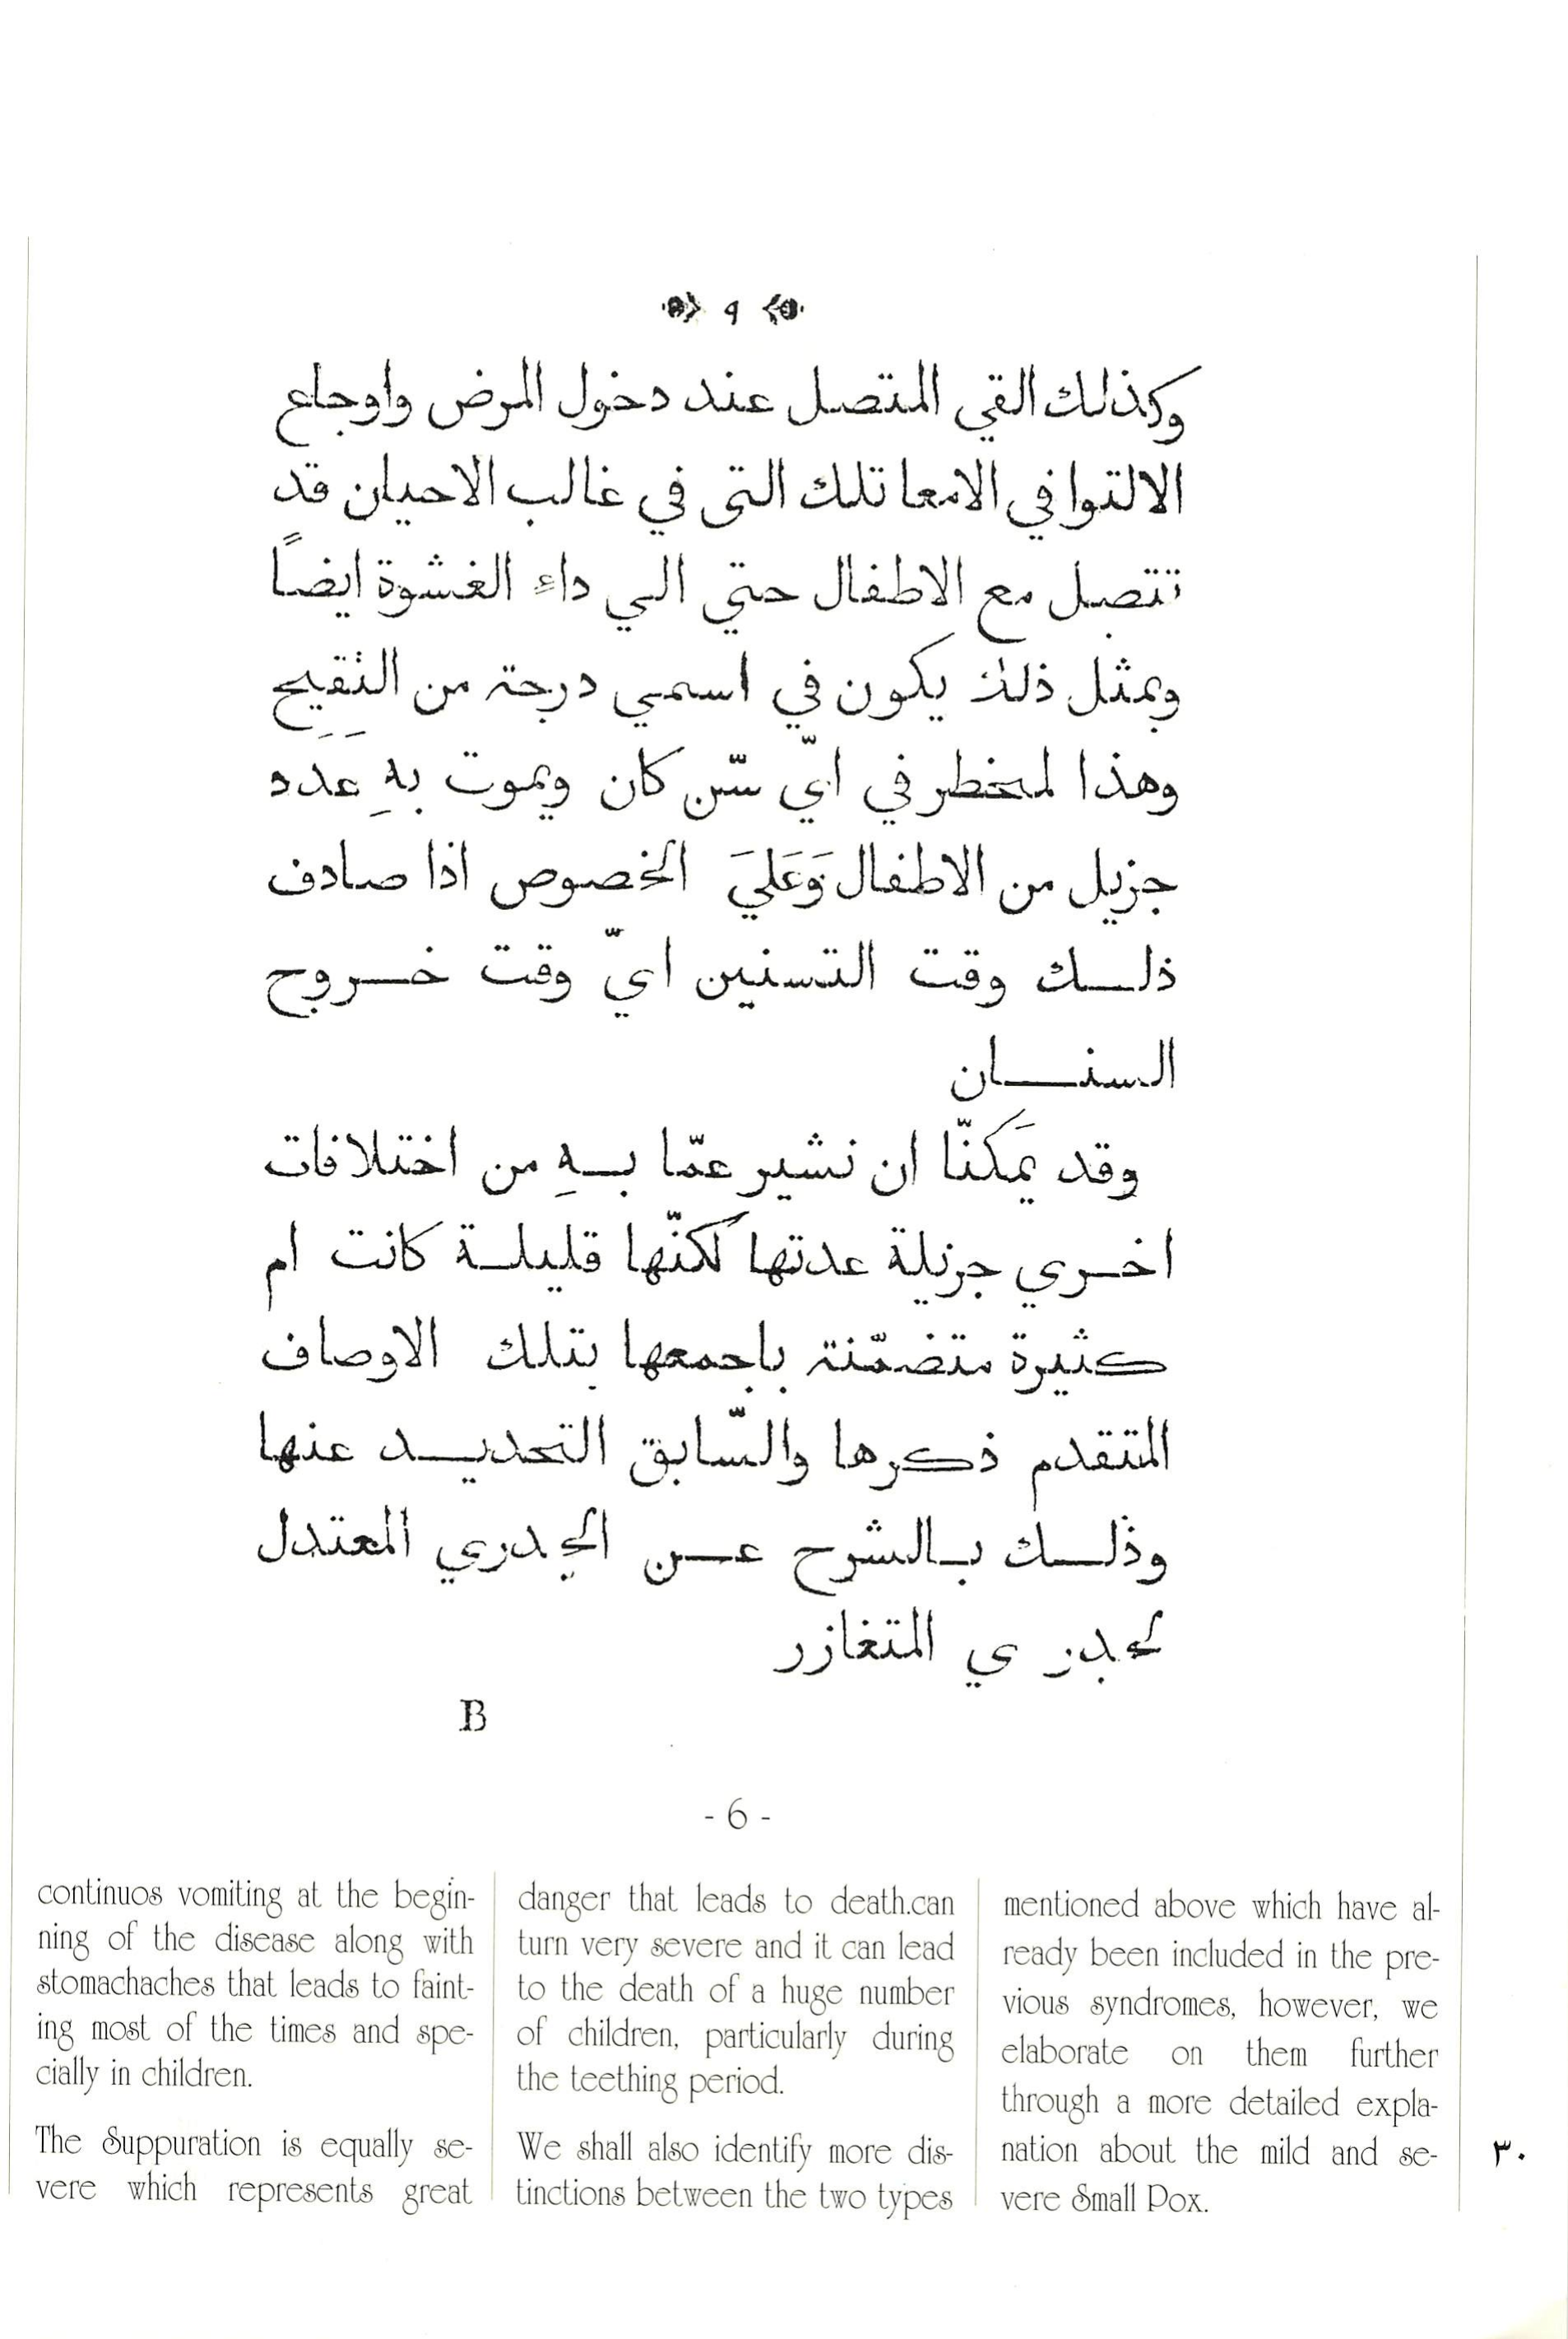 ٩
وكذلك القي المتصل عند دخول المرض واوجاع
الالتوا في الامعا تلك التى في غالب الاحيان قد
تتصل مع الاطفال حتي الي داء الغشوة ايضاً
وبمثل ذلك يكون في اسمي درجة من التَقِيح
وهذا لمخطر في ايّ سّن كان ويموت بهِ عدد
جزيل من الاطفال وَعَليَ الخصوص اذا صادف
ذلك وقت التسنين ايّ وقت خروج
السنان
وقد يمَكنّا ان نشير عمّا بهِ من اختلافات
اخري جزيلة عدتها لكنّها قليلة كانت ام
كثيرة متضمّنة باجمعها بتلك الاوصاف
المتقدم ذكرها والسّابق التحديد عنها
وذلك بالشرح عن الجدري المعتدل
لجدري المتغازر
B
- 6 -
continuos vomiting at the begin-
ning of the disease along with
stomachaches that leads to faint-
ing most of the times and spe-
cially in children.
The Suppuration is equally se-
vere which represents great
danger that leads to death.can
turn very severe and it can lead
to the death of a huge number
of children, particularly during
the teething period.
We shall also identify more dis-
tinctions between the two types
mentioned above which have al-
ready been included in the pre-
vious syndromes, however, we
elaborate on them further
through a more detailed expla-
nation about the mild and se-
vere Small Pox.
٣٠